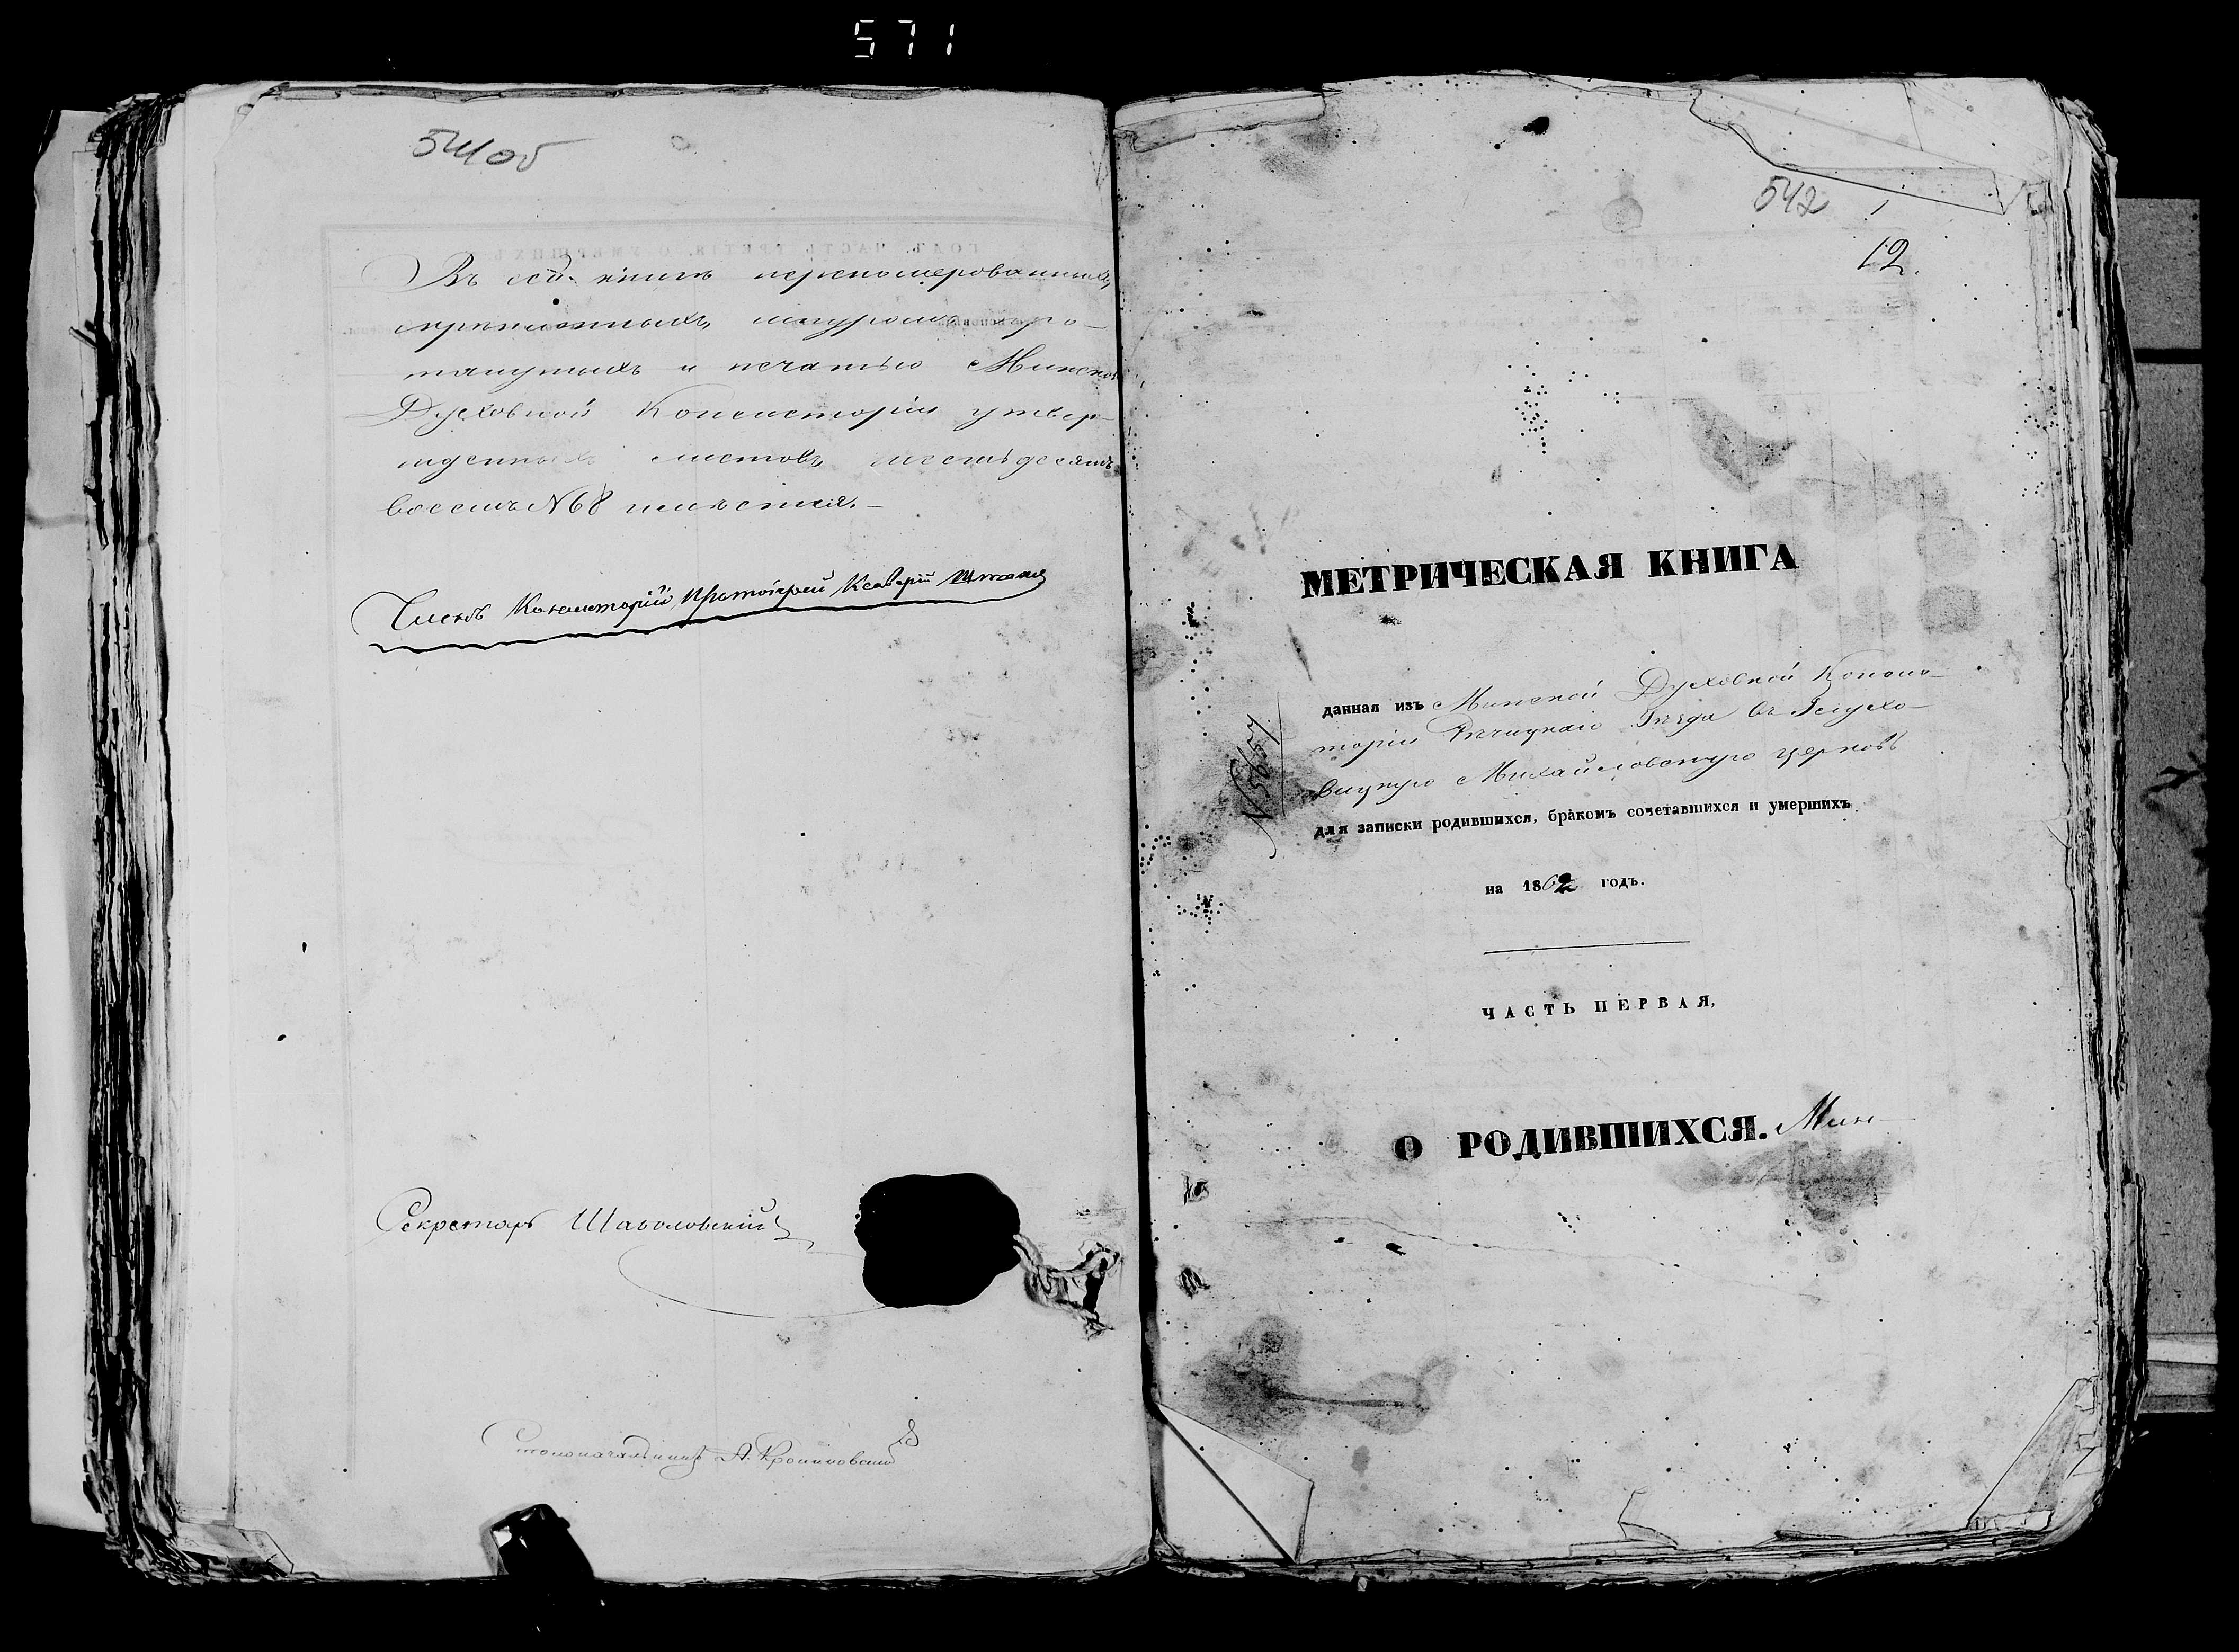 571
541об
Въ сей книгѣ перенумерованныхъ,
скрѣпленныхъ, шнуромъ про-
тянутыхъ и печатью Минской
Духовной Консисторіи утвер-
жденныхъ листовъ шестьдесятъ
восемь №68 имѣется.
Членъ Консисторіи Протоіерей Ксаверій
Секретарь
Столоначальникъ А.
542 1
12.
МЕТРИЧЕСКАЯ КНИГА
данная изъ Минской Духовной Консис-
торіи Рѣчицкаго Уѣзда въ Глухо-
вицкую Михайловскую церковь
№5657
для записки родившихся, бракомъ сочетавшихся и умершихъ
на 1862 годъ.
ЧАСТЬ ПЕРВАЯ,
О РОДИВШИХСЯ. Мин